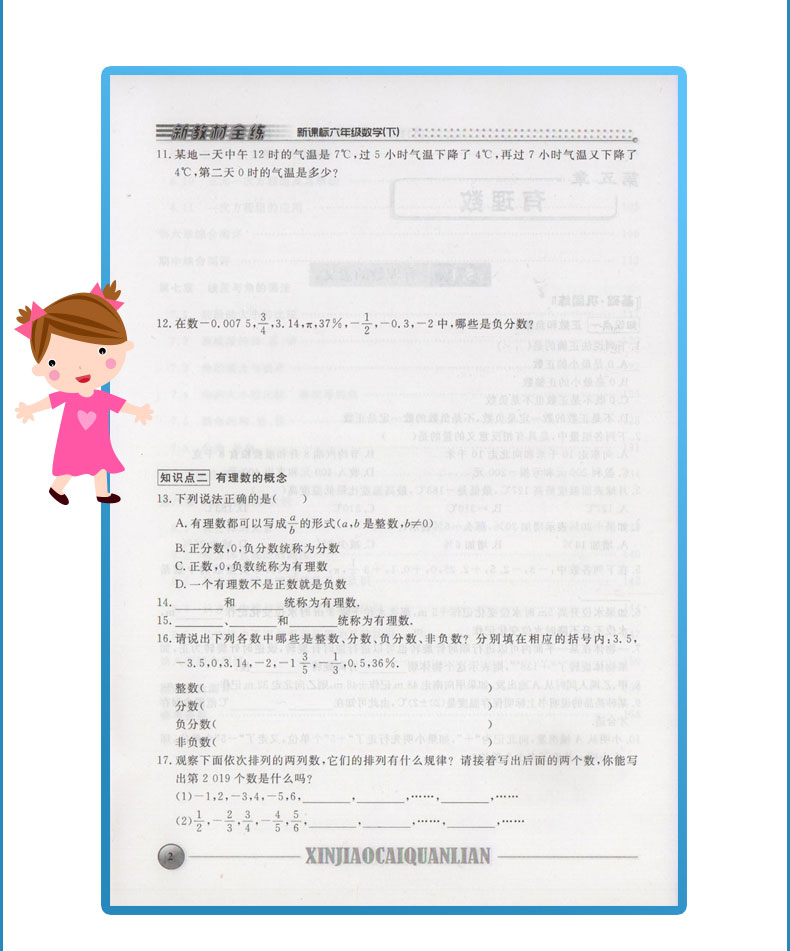 新教材全练 新课标六年级数学(下)
11. 某地一天中午 12 时的气温是 7℃,过 5 小时气温下降了 4℃,再过 7 小时气温又下降了
4℃,第二天 0 时的气温是多少?
12. 在数-0.007 5, 3/4, 3.14, π, 37%, -1/2, -0.3, -2 中,哪些是负分数?
知识点二 有理数的概念
13. 下列说法正确的是( )
A. 有理数都可以写成 a/b 的形式(a,b 是整数,b≠0)
B. 正分数,0,负分数统称为分数
C. 正数,0,负数统称为有理数
D. 一个有理数不是正数就是负数
14. ______和______统称为有理数.
15. ______、______和______统称为有理数.
16. 请说出下列各数中哪些是整数、分数、负分数、非负数?分别填在相应的括号内:3.5,
-3.5,0,3.14,-2,-1 3/5,-1/3,0.5,36%.
整数( )
分数( )
负分数( )
非负数( )
17. 观察下面依次排列的两列数,它们的排列有什么规律?请接着写出后面的两个数,你能写
出第 2 019 个数是什么吗?
(1)-1,2,-3,4,-5,6,______,______,……,______,……
(2)1/2,-2/3,3/4,-4/5,5/6,______,______,……,______,……
2 XINJIAOCAIQUANLIAN